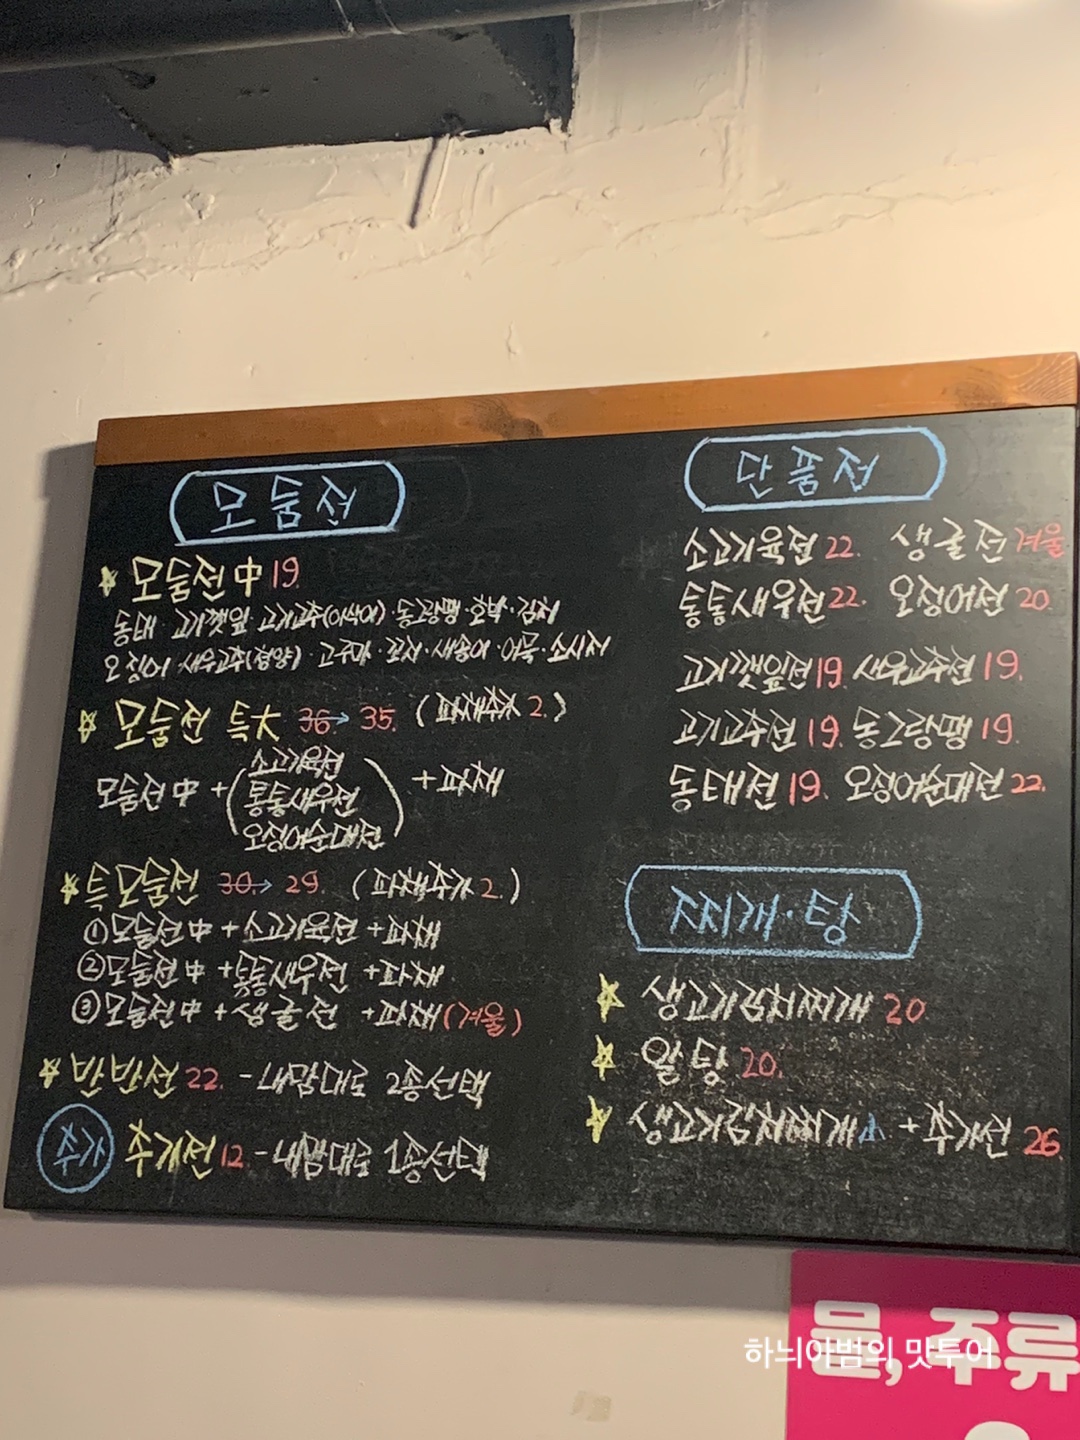 모둠전
★ 모둠전 中 19.
동태 고기깻잎 고기고추(아삭이)·동그랑땡·호박·김치
오징어·새우고추(청양)·고구마·두부·새송이·어묵·소시지
★ 모둠전 특大 36.→ 35. (파채추가 2.)
모둠전 中 + ( 소고기육전
통통새우전
오징어순대전 ) + 파채
★ 특모둠전 30.→ 29. (파채추가 2.)
①모둠전中 + 소고기육전 + 파채
②모둠전 中 + 통통새우전 + 파채
③모둠전中 + 생굴전 + 파채(겨울)
★ 반반전 22. - 내맘대로 2종선택
추가 추가전 12 - 내맘대로 1종선택
단품전
소고기육전 22. 생굴전 겨울
통통새우전 22. 오징어전 20.
고기깻잎전 19. 새우고추전 19.
고기고추전 19. 동그랑땡 19.
동태전 19. 오징어순대전 22.
찌개·탕
★ 생고기김치찌개 20
★ 알탕 20.
★ 생고기김치찌개小 + 추가전 26
물, 주류
하늬아범의 맛투어